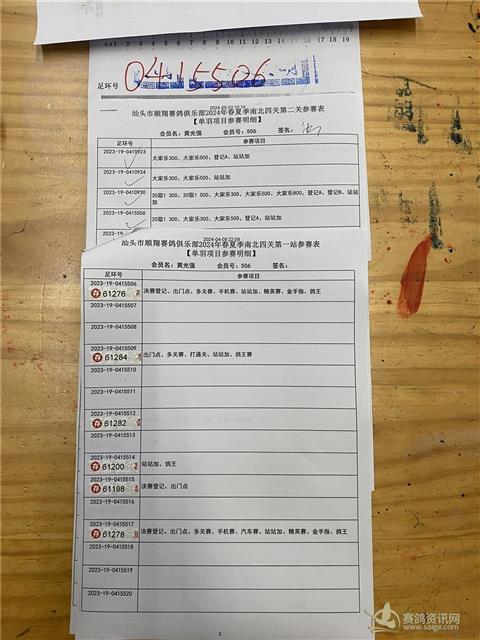 12 13 14 15 16 17 18 19
足环号
0415506
2024-05-03 10:14
汕头市顺翔赛鸽俱乐部2024年春夏季南北四关第二关参赛表
【单羽项目参赛明细】
会员名：黄光强 会员号：506 签名：
足环号 参赛项目
2023-19-0410923 大家乐300、大家乐500、登记A、站站加
2023-19-0410924 大家乐300、大家乐500、站站加
2023-19-0410930 20取1 300、20取1 500、大家乐300、大家乐500、大家乐800、登记A、登记B、站站加
2023-19-0415506 20取1 300、大家乐300、大家乐500、登记A、站站加
2024-04-09 22:09
汕头市顺翔赛鸽俱乐部2024年春夏季南北四关第一站参赛表
【单羽项目参赛明细】
会员名：黄光强 会员号：506 签名：
足环号 参赛项目
2023-19-0415506
存 61276 决赛登记、出门点、多关赛、手机赛、站站加、精英赛、金手指、鸽王
2023-19-0415507
2023-19-0415508
2023-19-0415509
存 61284 出门点、多关赛、打通关、站站加、鸽王赛
2023-19-0415510
2023-19-0415511
2023-19-0415512
存 61282
2023-19-0415513
2023-19-0415514
存 61200 站站加、鸽王
2023-19-0415515
存 61198 决赛登记、出门点
2023-19-0415516
2023-19-0415517
存 61278 决赛登记、出门点、多关赛、手机赛、汽车赛、站站加、精英赛、金手指、鸽王
2023-19-0415518
2023-19-0415519
2023-19-0415520
2
赛鸽资讯网
www.saige.com